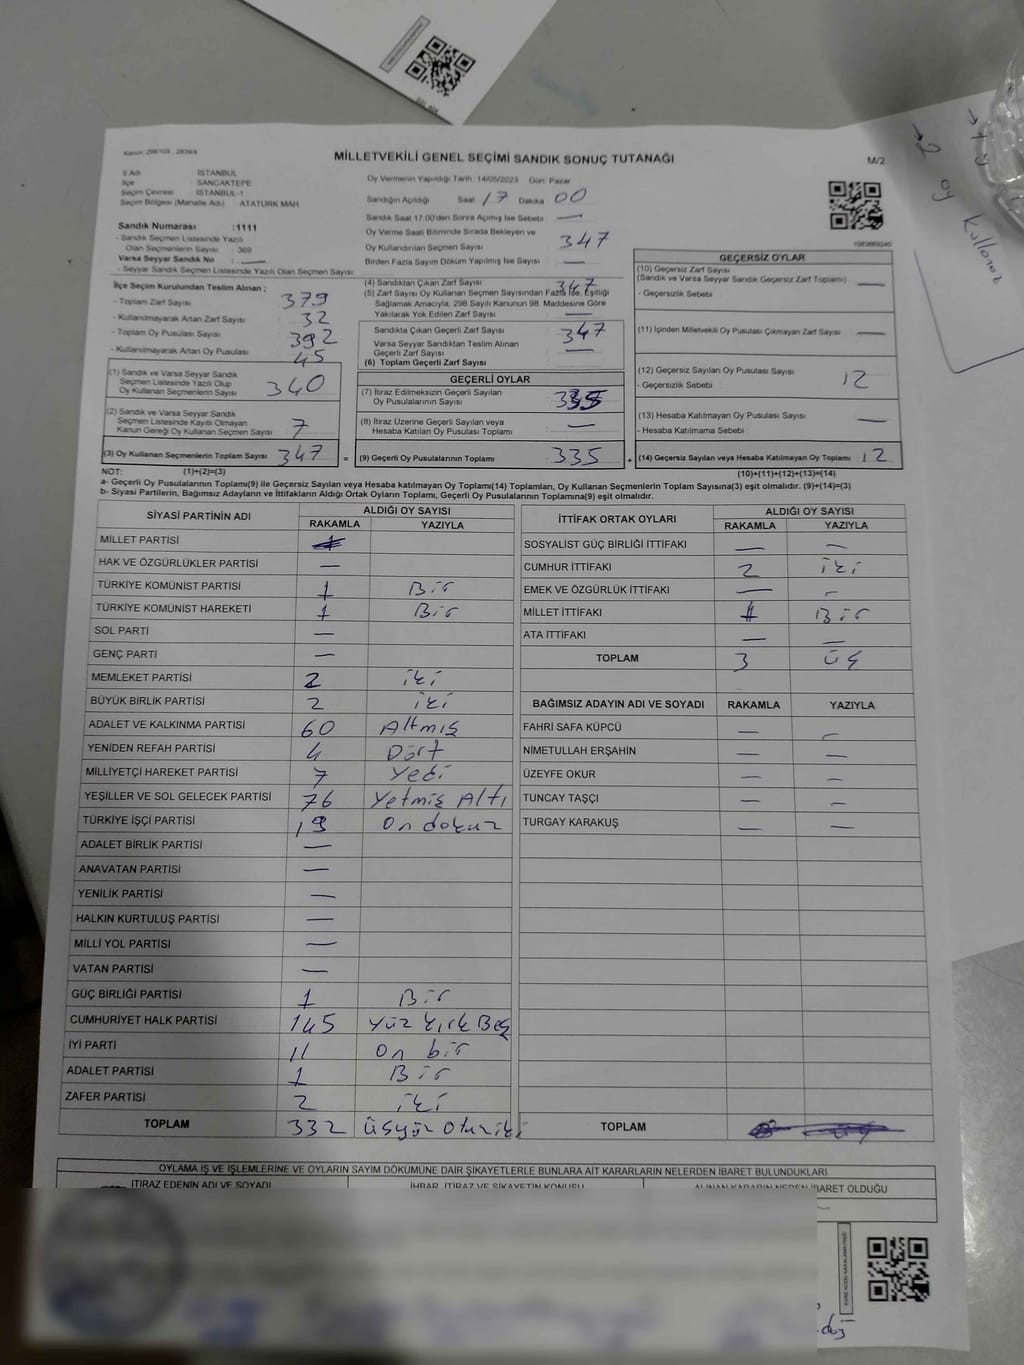 Kanun: 298/105 , 2839/4
MİLLETVEKİLİ GENEL SEÇİMİ SANDIK SONUÇ TUTANAĞI
M/2
İl Adı : İSTANBUL
İlçe : SANCAKTEPE
Seçim Çevresi : İSTANBUL-1
Seçim Bölgesi (Mahalle Adı) : ATATÜRK MAH
Oy Vermenin Yapıldığı Tarih: 14/05/2023 Gün: Pazar
Sandığın Açıldığı Saat 17 Dakika 00
Sandık Saat 17:00'den Sonra Açılmış İse Sebebi : —
Oy Verme Saati Bitiminde Sırada Bekleyen ve
Oy Kullandırılan Seçmen Sayısı 347
Birden Fazla Sayım Döküm Yapılmış İse Sayısı : —
Sandık Numarası :1111
- Sandık Seçmen Listesinde Yazılı
Olan Seçmenlerin Sayısı 369
Varsa Seyyar Sandık No : —
- Seyyar Sandık Seçmen Listesinde Yazılı Olan Seçmen Sayısı:
İlçe Seçim Kurulundan Teslim Alınan ;
- Toplam Zarf Sayısı : 379
- Kullanılmayarak Artan Zarf Sayısı : 32
- Toplam Oy Pusulası Sayısı : 392
- Kullanılmayarak Artan Oy Pusulası : 45
(1) Sandık ve Varsa Seyyar Sandık
Seçmen Listesinde Yazılı Olup
Oy Kullanan Seçmenlerin Sayısı : 340
(2) Sandık ve Varsa Seyyar Sandık
Seçmen Listesinde Kayıtlı Olmayan
Kanun Gereği Oy Kullanan Seçmen Sayısı : 7
(3) Oy Kullanan Seçmenlerin Toplam Sayısı : 347 =
(4) Sandıktan Çıkan Zarf Sayısı : 347
(5) Zarf Sayısı Oy Kullanan Seçmen Sayısından Fazla İse, Eşitliği
Sağlamak Amacıyla, 298 Sayılı Kanunun 98. Maddesine Göre
Yakılarak Yok Edilen Zarf Sayısı : —
Sandıkta Çıkan Geçerli Zarf Sayısı : 347
Varsa Seyyar Sandıktan Teslim Alınan
Geçerli Zarf Sayısı : —
(6) Toplam Geçerli Zarf Sayısı :
GEÇERLİ OYLAR
(7) İtiraz Edilmeksizin Geçerli Sayılan
Oy Pusulalarının Sayısı : 335
(8) İtiraz Üzerine Geçerli Sayılan veya
Hesaba Katılan Oy Pusulası Toplamı : —
(9) Geçerli Oy Pusulalarının Toplamı : 335 +
GEÇERSİZ OYLAR
(10) Geçersiz Zarf Sayısı
(Sandık ve Varsa Seyyar Sandık Geçersiz Zarf Toplamı) : —
- Geçersizlik Sebebi :
(11) İçinden Milletvekili Oy Pusulası Çıkmayan Zarf Sayısı : —
(12) Geçersiz Sayılan Oy Pusulası Sayısı : 12
- Geçersizlik Sebebi :
(13) Hesaba Katılmayan Oy Pusulası Sayısı : —
- Hesaba Katılmama Sebebi :
(14) Geçersiz Sayılan veya Hesaba Katılmayan Oy Toplamı : 12
NOT: (1)+(2)=(3) (10)+(11)+(12)+(13)=(14)
a- Geçerli Oy Pusulalarının Toplamı(9) ile Geçersiz Sayılan veya Hesaba katılmayan Oy Toplamı(14) Toplamları, Oy Kullanan Seçmenlerin Toplam Sayısına(3) eşit olmalıdır. (9)+(14)=(3)
b- Siyasi Partilerin, Bağımsız Adayların ve İttifakların Aldığı Ortak Oyların Toplamı, Geçerli Oy Pusulalarının Toplamına(9) eşit olmalıdır.
SİYASİ PARTİNİN ADI ALDIĞI OY SAYISI
RAKAMLA YAZIYLA
MİLLET PARTİSİ
HAK VE ÖZGÜRLÜKLER PARTİSİ —
TÜRKİYE KOMÜNİST PARTİSİ 1 Bir
TÜRKİYE KOMÜNİST HAREKETİ 1 Bir
SOL PARTİ —
GENÇ PARTİ —
MEMLEKET PARTİSİ 2 iki
BÜYÜK BİRLİK PARTİSİ 2 iki
ADALET VE KALKINMA PARTİSİ 60 Altmış
YENİDEN REFAH PARTİSİ 4 Dört
MİLLİYETÇİ HAREKET PARTİSİ 7 Yedi
YEŞİLLER VE SOL GELECEK PARTİSİ 76 Yetmiş Altı
TÜRKİYE İŞÇİ PARTİSİ 19 On dokuz
ADALET BİRLİK PARTİSİ —
ANAVATAN PARTİSİ —
YENİLİK PARTİSİ —
HALKIN KURTULUŞ PARTİSİ —
MİLLİ YOL PARTİSİ —
VATAN PARTİSİ —
GÜÇ BİRLİĞİ PARTİSİ 1 Bir
CUMHURİYET HALK PARTİSİ 145 Yüz Kırk Beş
İYİ PARTİ 11 On bir
ADALET PARTİSİ 1 Bir
ZAFER PARTİSİ 2 iki
TOPLAM 332 üçyüz Otuziki
İTTİFAK ORTAK OYLARI ALDIĞI OY SAYISI
RAKAMLA YAZIYLA
SOSYALİST GÜÇ BİRLİĞİ İTTİFAKI — —
CUMHUR İTTİFAKI 2 iki
EMEK VE ÖZGÜRLÜK İTTİFAKI — —
MİLLET İTTİFAKI 1 Bir
ATA İTTİFAKI — —
TOPLAM 3 üç
BAĞIMSIZ ADAYIN ADI VE SOYADI RAKAMLA YAZIYLA
FAHRİ SAFA KÜPCÜ — —
NİMETULLAH ERŞAHİN — —
ÜZEYFE OKUR — —
TUNCAY TAŞÇI — —
TURGAY KARAKUŞ — —
TOPLAM
OYLAMA İŞ VE İŞLEMLERİNE VE OYLARIN SAYIM DÖKÜMÜNE DAİR ŞİKAYETLERLE BUNLARA AİT KARARLARIN NELERDEN İBARET BULUNDUKLARI
İTİRAZ EDENİN ADI VE SOYADI İHBAR, İTİRAZ VE ŞİKAYETİN KONUSU ALINAN KARARIN NEDEN İBARET OLDUĞU
→ 2 oy kullanız